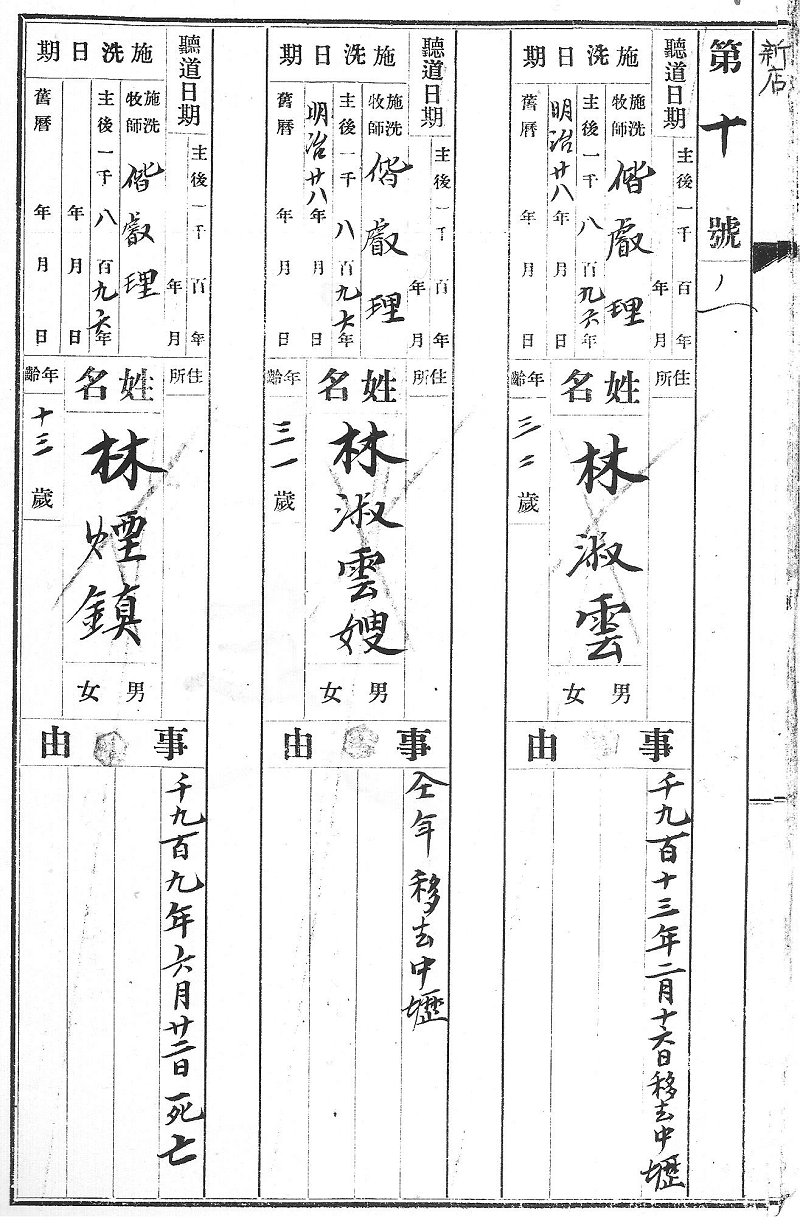 新店
第十號
聽道日期
主後一千 百 年
年 月
施洗日期
施洗牧師 偕叡理
主後一千八百九六年
明治廿八年 月 日
舊曆 年 月 日
住所
姓名
林淑雲
男女
年齡
三二歲
事由
千九百十三年二月十六日移去中壢
聽道日期
主後一千 百 年
年 月
施洗日期
施洗牧師 偕叡理
主後一千八百九六年
明治廿八年 月 日
舊曆 年 月 日
住所
姓名
林淑雲嫂
男女
年齡
三一歲
事由
仝年移去中壢
聽道日期
主後一千 百 年
年 月
施洗日期
施洗牧師 偕叡理
主後一千八百九六年
年 月 日
舊曆 年 月 日
住所
姓名
林煙鎮
男女
年齡
十三歲
事由
千九百九年六月廿二日死亡